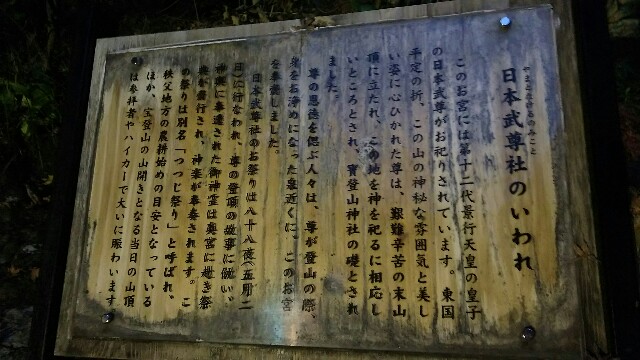 やまとたけるのみこと
日本武尊社のいわれ
このお宮には第十二代景行天皇の皇子
の日本武尊がお祀りされています。東国
平定の折、この山の神秘な雰囲気と美し
い姿に心ひかれた尊は、艱難辛苦の末山
頂に立たれ、この地を神を祀るに相応し
いところとされ、寶登山神社の礎とされ
ました。
尊の恩徳を偲ぶ人々は、尊が登山の際、
身をお浄めになった泉近くに、このお宮
を奉斎しました。
日本武尊社のお祭りは八十八夜(五月二
日)に行なわれ、尊の登頂の故事に倣い、
神輿に奉遷された御神霊は奥宮に赴き祭
典が斎行され、神楽が奉奏されます。こ
の祭りは別名「つつじ祭り」と呼ばれ、
秩父地方の農耕始めの目安となっている
ほか、宝登山の山開きとなる当日の山頂
は参拝者やハイカーで大いに賑わいます